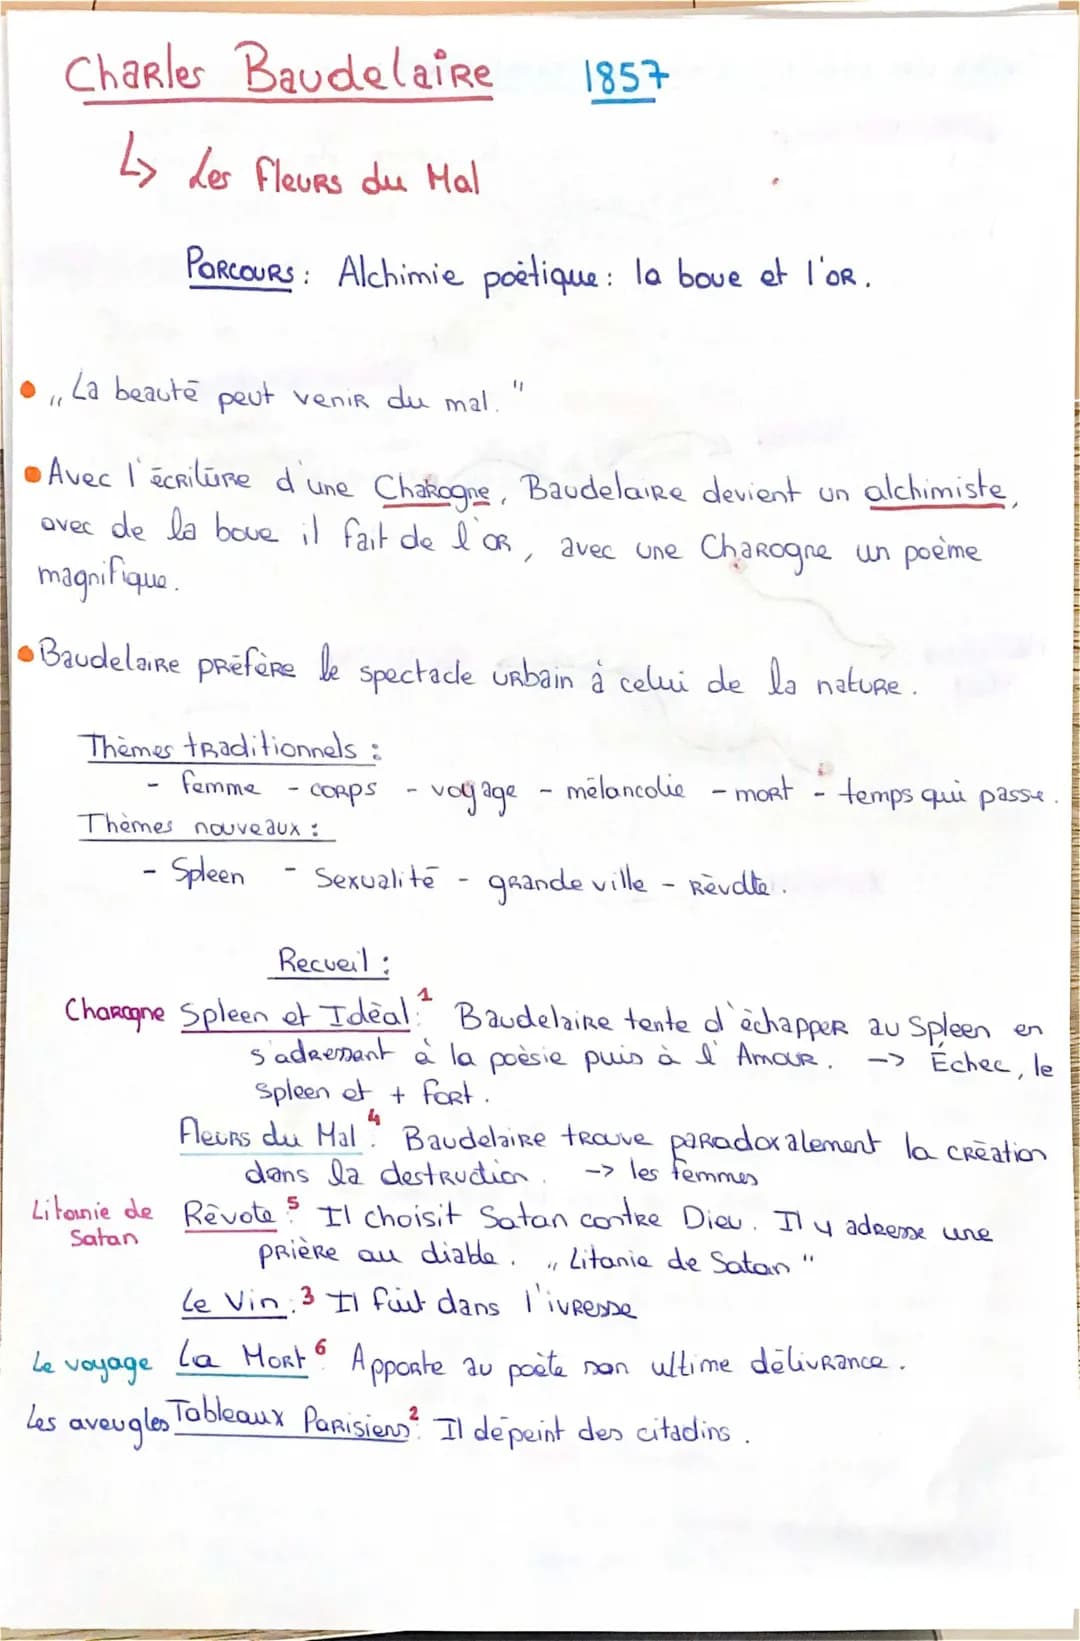 Charles Baudelaire 1857
↳ Les fleurs du Mal
Parcours : Alchimie poètique : la boue et l'or.
• „La beauté peut venir du mal."
• Avec l'écriture d'une Charogne, Baudelaire devient un alchimiste,
avec de la boue il fait de l'or, avec une Charogne un poème
magnifique.
• Baudelaire préfère le spectacle urbain à celui de la nature.
Thèmes traditionnels :
- femme - corps - voyage - mélancolie - mort - temps qui passe.
Thèmes nouveaux :
- Spleen - Sexualité - grande ville - Rèvolte.
Recueil :
Charogne Spleen et Idèal :¹ Baudelaire tente d'èchapper au Spleen en
s'adressant à la poèsie puis à l'Amour. -> Échec, le
Spleen et + fort.
fleurs du Mal :⁴ Baudelaire trouve paradoxalement la création
dans la destruction. -> les femmes
Litanie de Satan Rèvote :⁵ Il choisit Satan contre Dieu. Il y adresse une
prière au diable. „Litanie de Satan"
Le Vin :³ Il fuit dans l'ivresse
Le voyage La Mort :⁶ Apporte au poète son ultime délivrance.
Les aveugles Tableaux Parisiens :² Il dépeint des citadins.